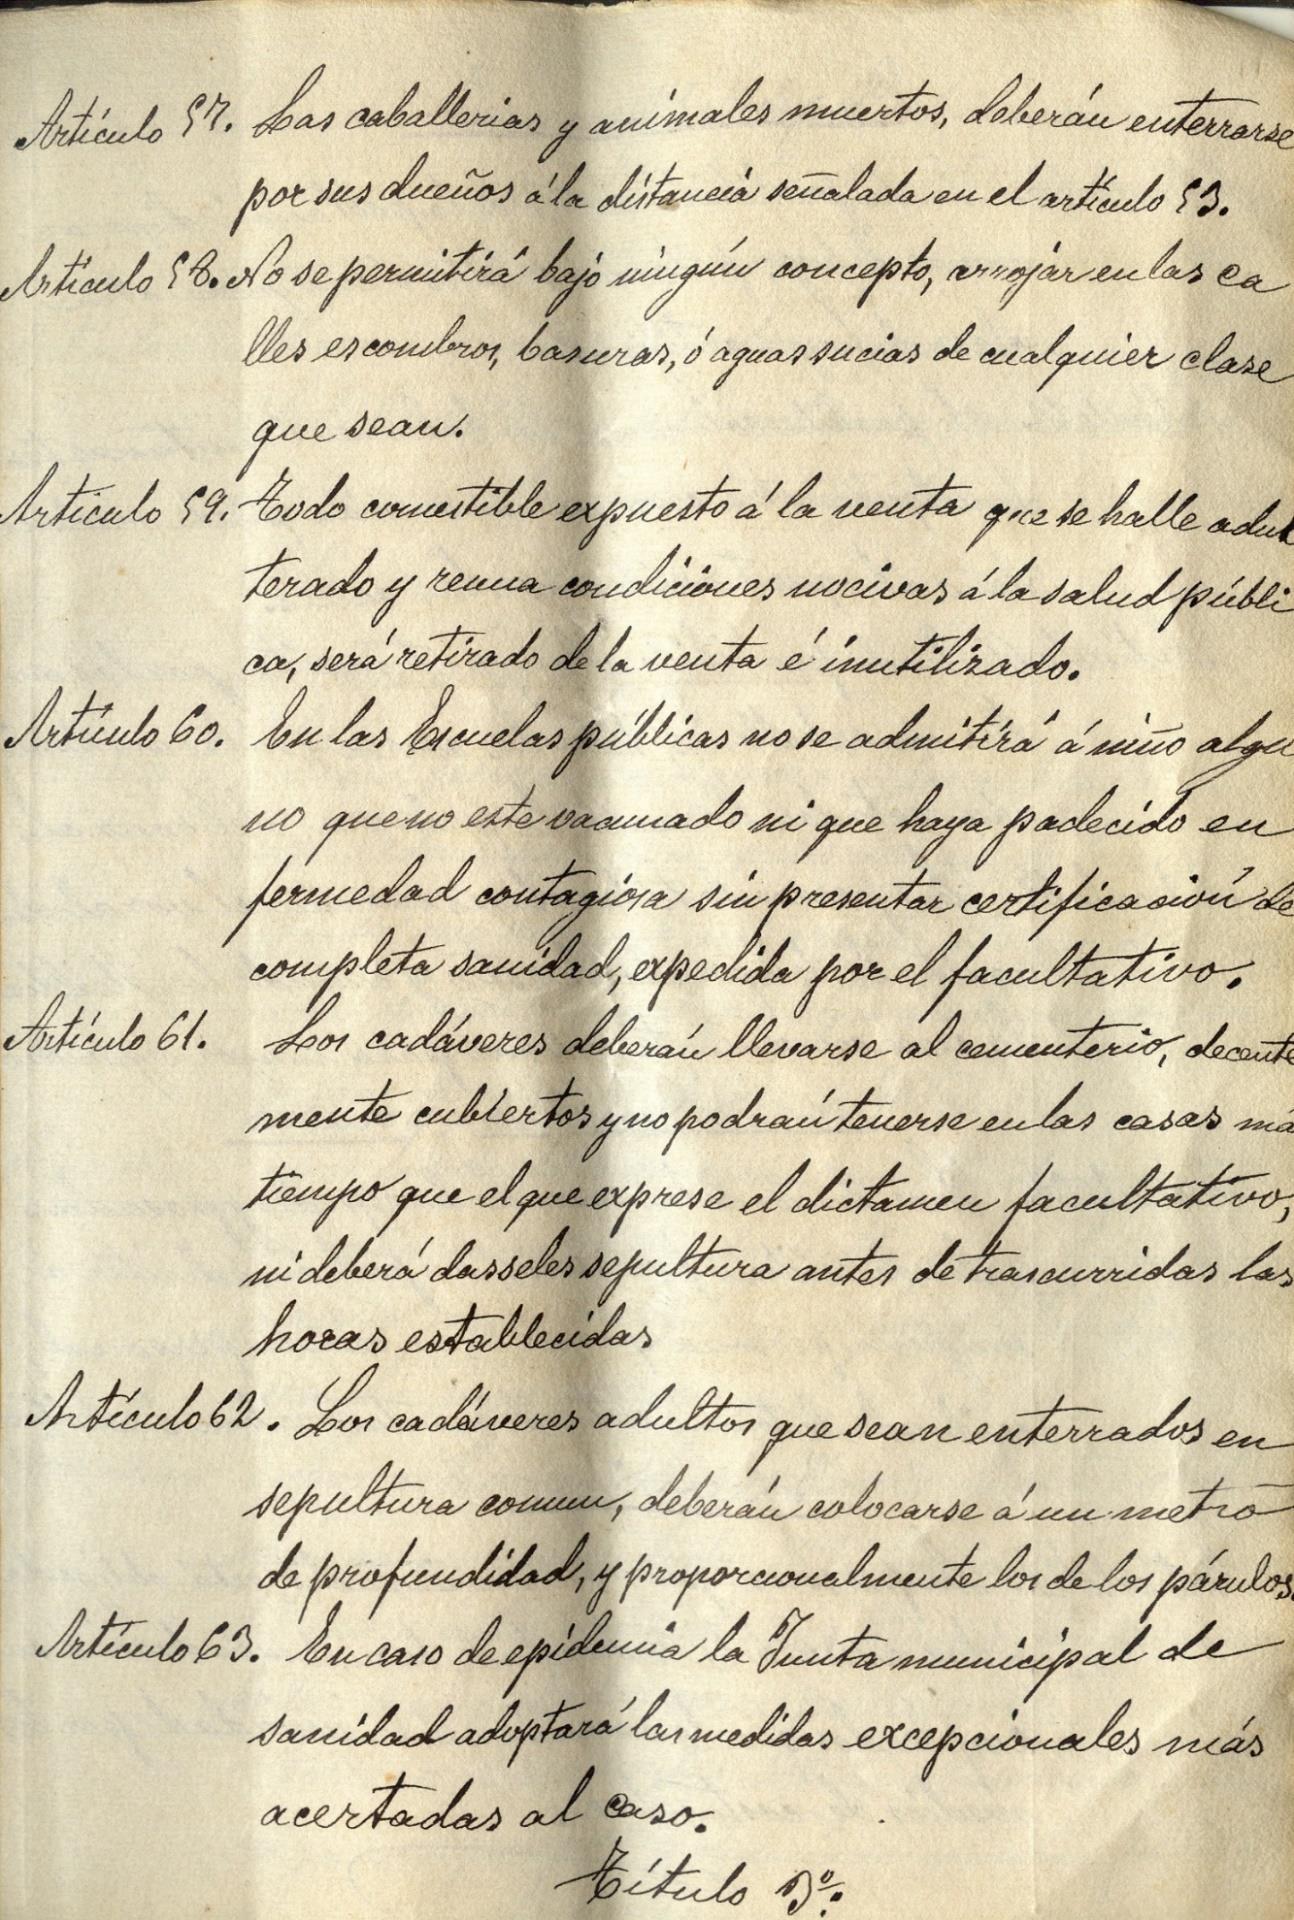 Artículo 57. Las caballerias y animales muertos, deberán enterrarse
por sus dueños á la distancia señalada en el artículo 53.
Artículo 58. No se permitirá bajo ningún concepto, arrojar en las ca
lles escombros, basuras, ó aguas sucias de cualquier clase
que sean.
Artículo 59. Todo comestible expuesto á la venta que se halle adul
terado y reuna condiciones nocivas á la salud públi
ca, será retirado de la venta é inutilizado.
Artículo 60. En las Escuelas públicas no se admitirá á niño algu
no que no este vacunado ni que haya padecido en
fermedad contagiosa sin presentar certificación de
completa sanidad, expedida por el facultativo.
Artículo 61. Los cadáveres deberán llevarse al cementerio, decente
mente cubiertos y no podrán tenerse en las casas má
tiempo que el que exprese el dictamen facultativo,
ni deberá dasseles sepultura antes de trascurridas las
horas establecidas
Artículo 62. Los cadáveres adultos que sean enterrados en
sepultura comun, deberán colocarse á un metro
de profundidad, y proporcionalmente los de los párvulos.
Artículo 63. En caso de epidemia la Junta municipal de
sanidad adoptará las medidas excepcionales más
acertadas al caso.
Título 3º.